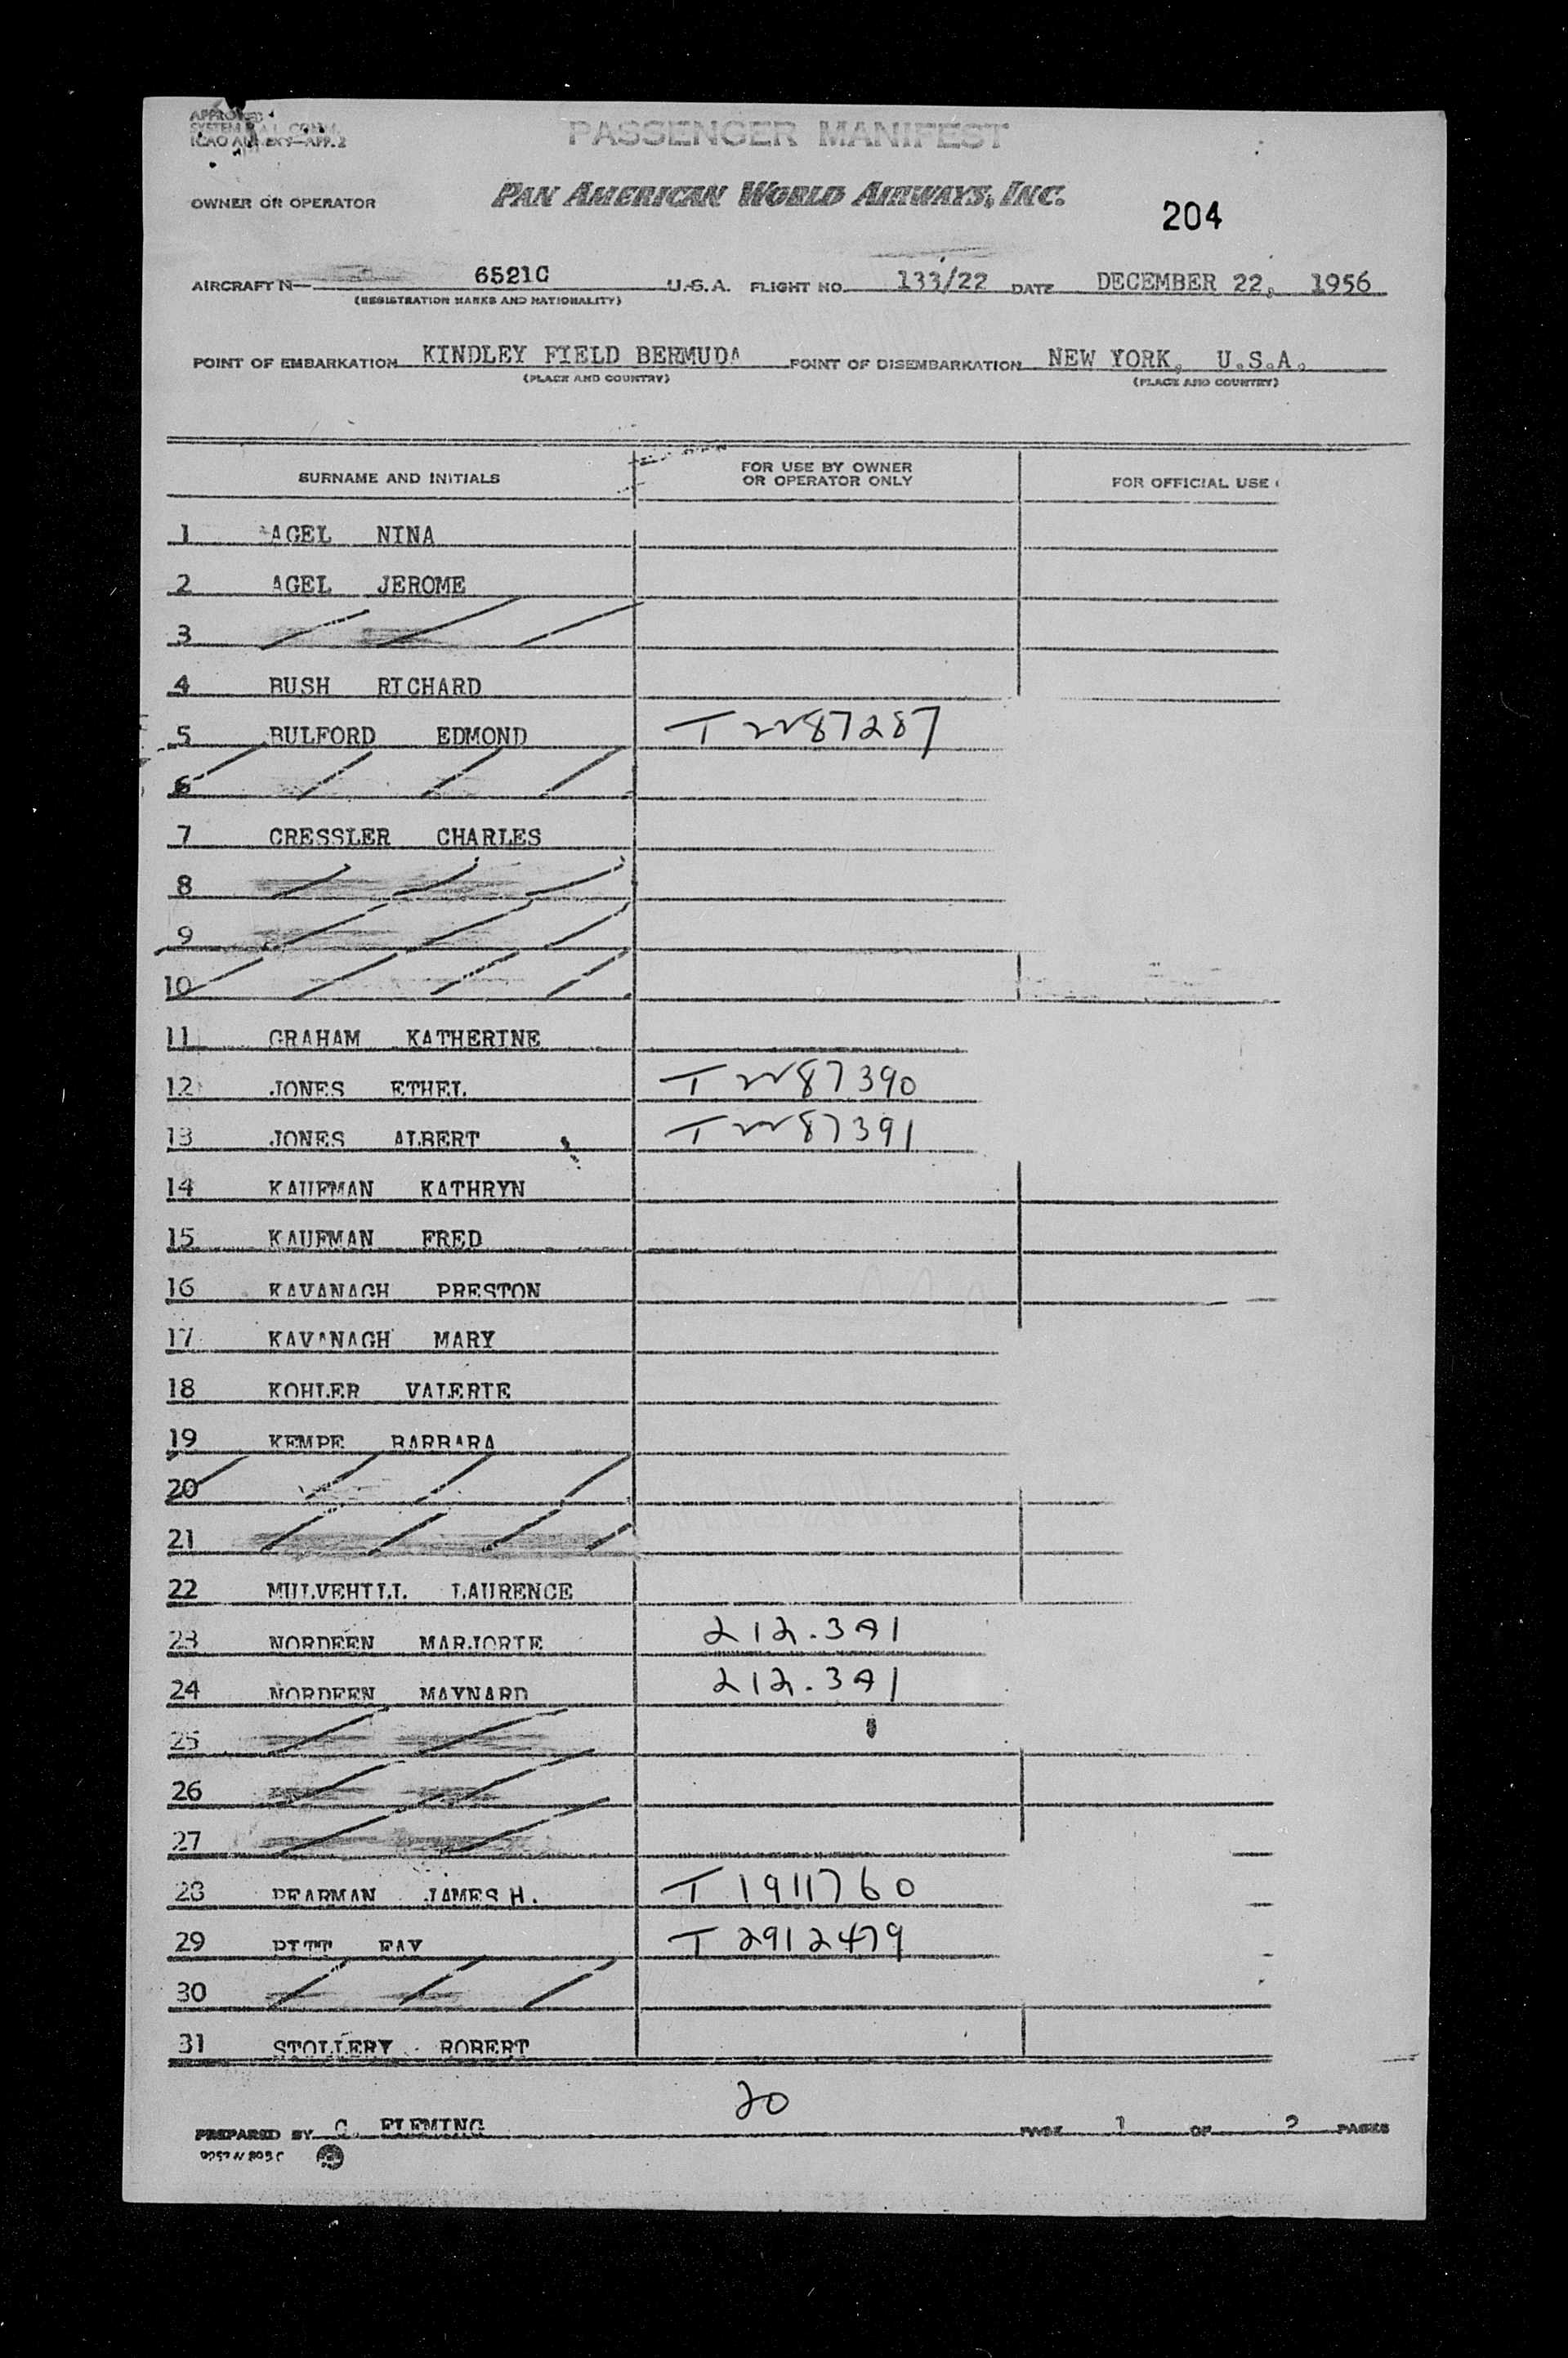 APPROVED
SYSTEM
ICAO ANNEX 9—APP. 2
PASSENGER MANIFEST
OWNER OR OPERATOR PAN AMERICAN WORLD AIRWAYS, INC.
204
AIRCRAFT N— 6521C U.S.A. FLIGHT NO. 133/22 DATE DECEMBER 22, 1956
(REGISTRATION MARKS AND NATIONALITY)
POINT OF EMBARKATION KINDLEY FIELD BERMUDA POINT OF DISEMBARKATION NEW YORK, U.S.A.
(PLACE AND COUNTRY) (PLACE AND COUNTRY)
SURNAME AND INITIALS FOR USE BY OWNER OR OPERATOR ONLY FOR OFFICIAL USE
1 AGEL NINA
2 AGEL JEROME
3
4 BUSH RICHARD
5 BULFORD EDMOND T W87287
6
7 CRESSLER CHARLES
8
9
10
11 GRAHAM KATHERINE
12 JONES ETHEL T W87390
13 JONES ALBERT T W87391
14 KAUFMAN KATHRYN
15 KAUFMAN FRED
16 KAVANAGH PRESTON
17 KAVANAGH MARY
18 KOHLER VALERIE
19 KEMPE BARBARA
20
21
22 MULVEHILL LAURENCE
23 NORDEEN MARJORIE 212.3A1
24 NORDEEN MAYNARD 212.3A1
25
26
27
28 PEARMAN JAMES H. T 1911760
29 PITT FAY T 2912479
30
31 STOLLERY ROBERT
20
PREPARED BY C. FLEMING PAGE 1 OF 2 PAGES